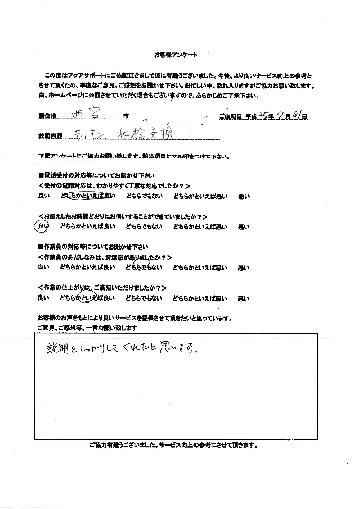 お客様アンケート
この度はアクアサポートにご依頼頂きまして誠に有難うございました。今後、より良いサービス向上の参考と
させて頂くため、率直なご意見、ご感想をお聞かせ下さい。お忙しい中、恐れ入りますがご協力お願い致します。
尚、ホームページに公開させていただく場合もございますので、あらかじめご了承下さい。
居住地 西宮 市 ご依頼日 平成
依頼内容 キッチン 水栓交換
下記アンケートにご協力お願い致します。該当項目に○をお付け下さい。
■電話受付の対応等についてお聞かせ下い
<受付の電話対応は、わかりやすく丁寧な対応でしたか?>
良い どちらかといえば良い どちらでもない どちらかといえば悪い 悪い
<お伝えしたお時間どおりにお伺いすることができていましたか?>
良い どちらかといえば良い どちらでもない どちらかといえば悪い 悪い
■作業員の対応等についてお聞かせ下さい
<作業員の身だしなみは、清潔感がありましたか?>
良い どちらかといえば良い どちらでもない どちらかといえば悪い 悪い
<作業の仕上がりは、ご満足いただけましたか?>
良い どちらかといえば良い どちらでもない どちらかといえば悪い 悪い
お客様のお声をもとにより良いサービスを提供させて頂きたいと思っています。
ご意見、ご感想等、一言お願い致します
説明をしっかりしてくれたと思います。
ご協力有難うございました。サービス向上の参考にさせて頂きます。